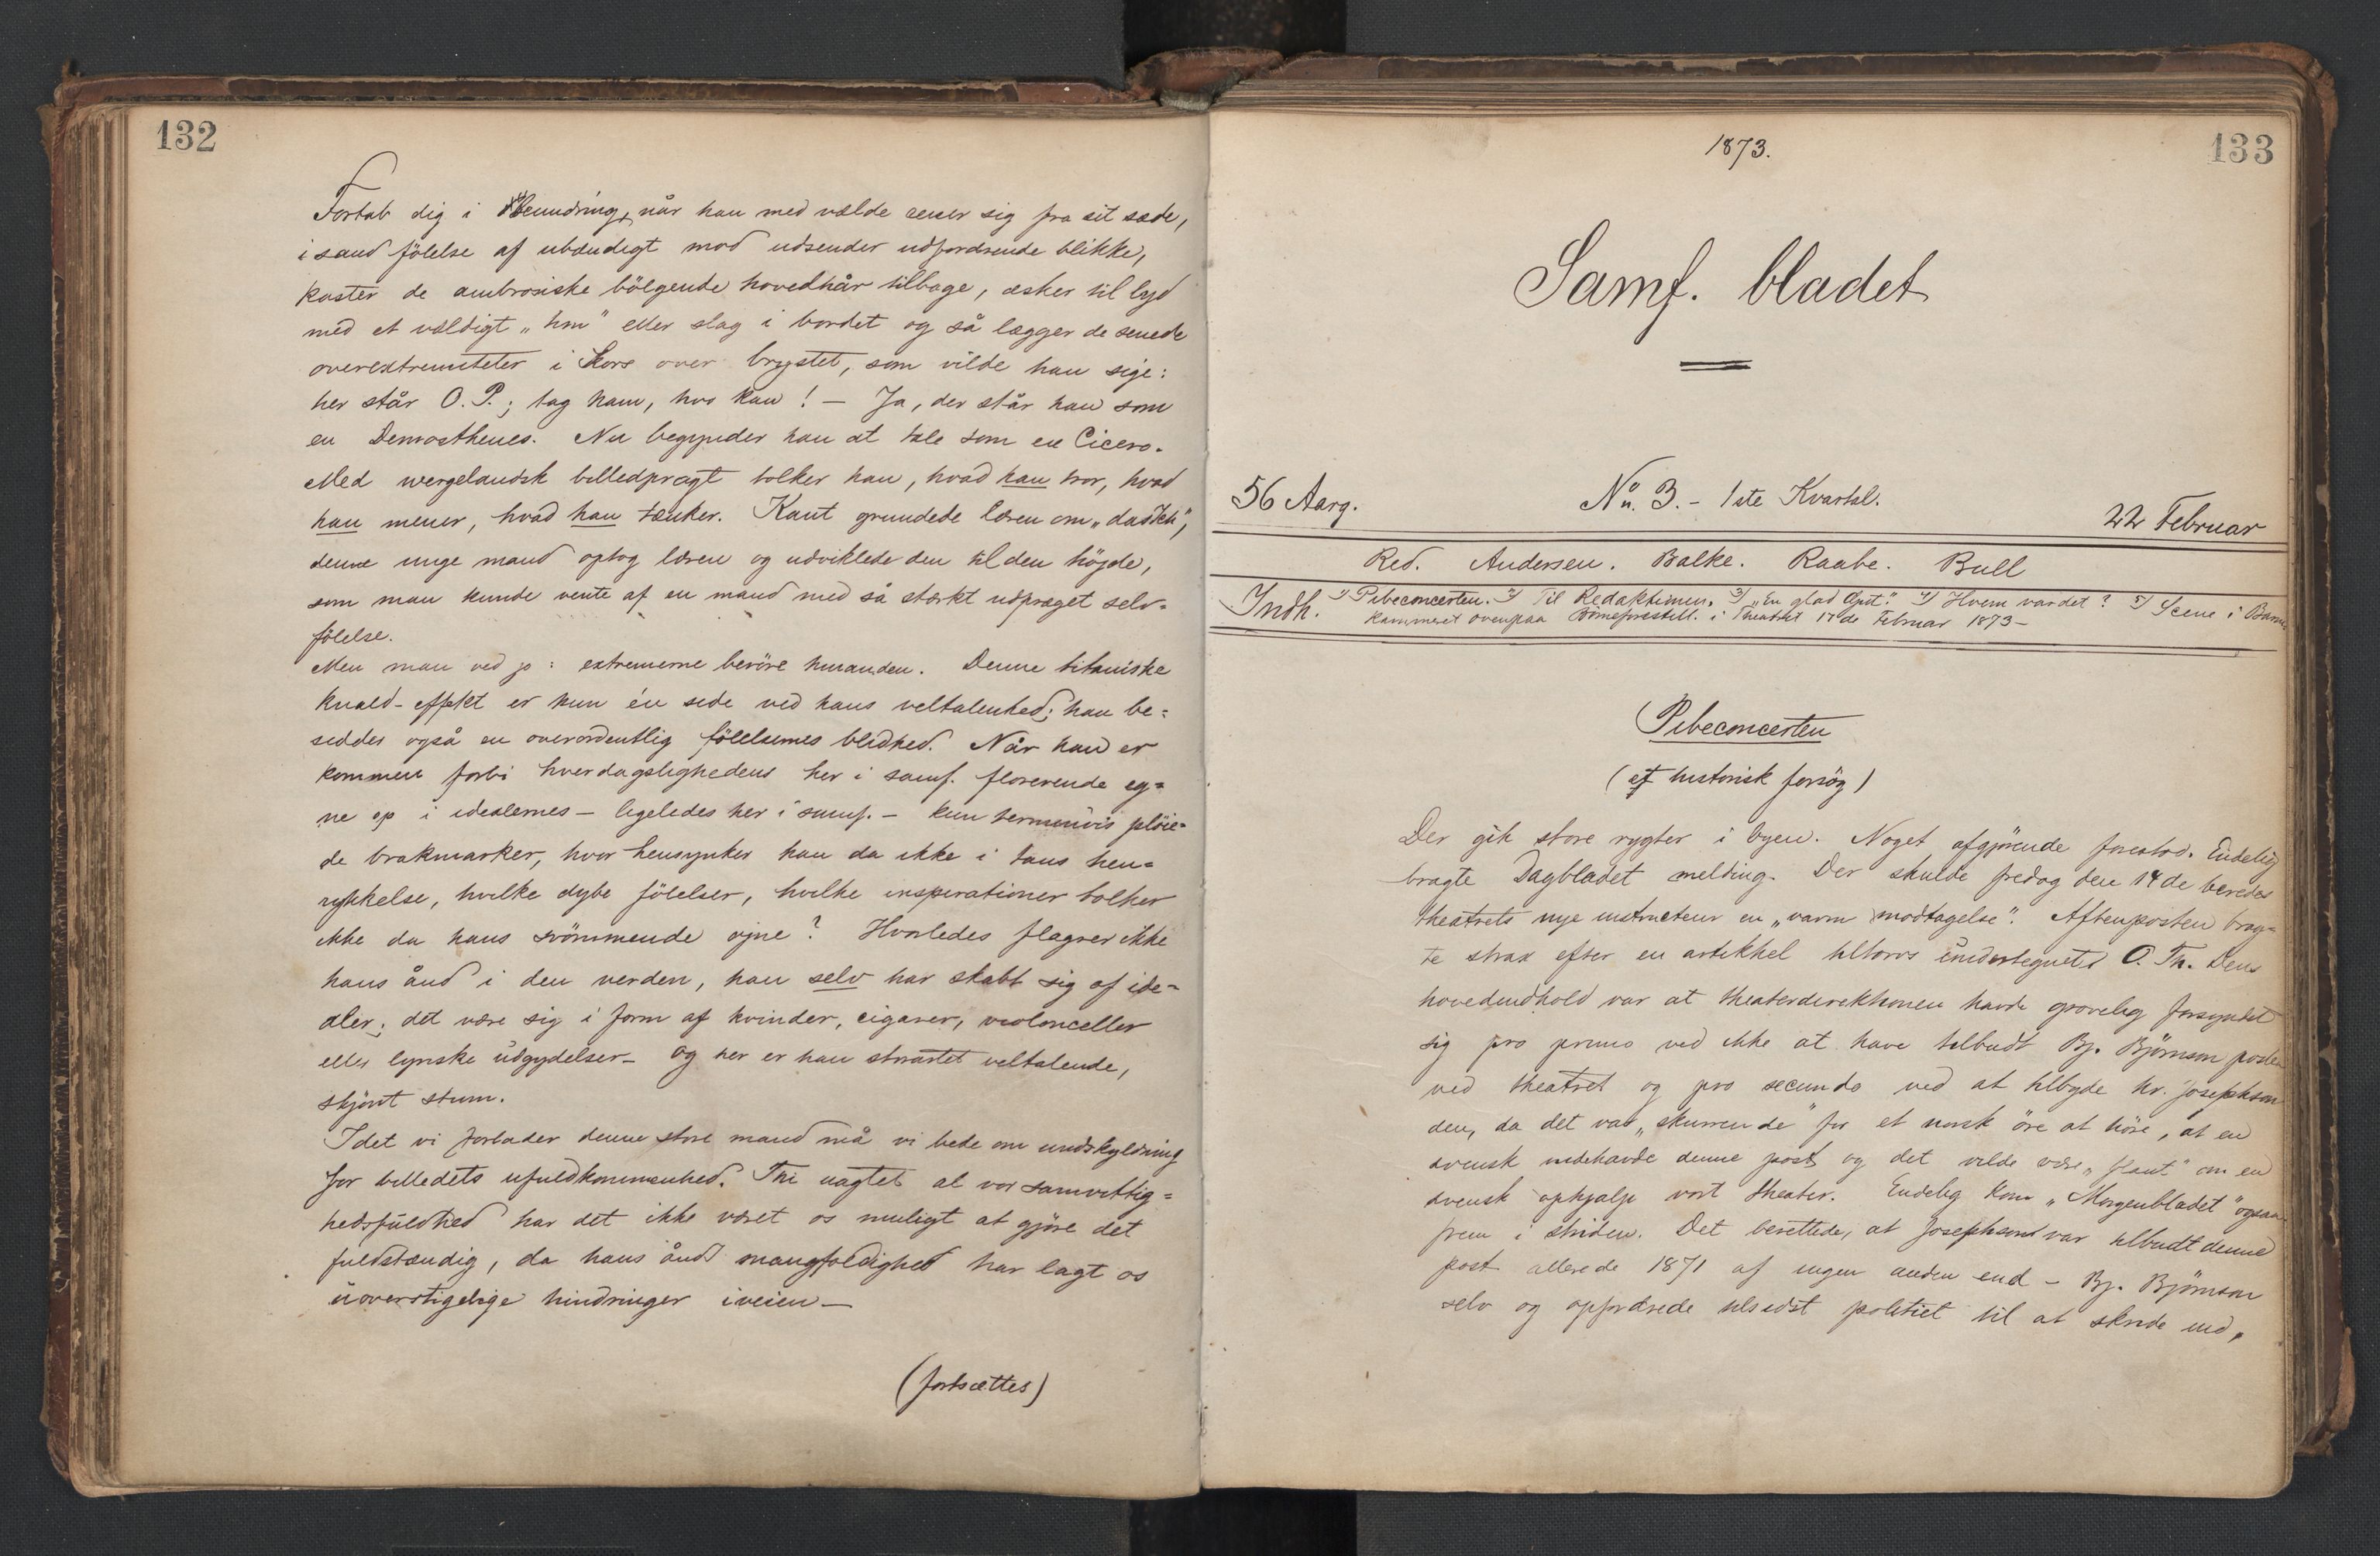 132
Fortab dig i Beundring, når han med vælde reiser sig fra sit sæde,
i sand fölelse af ubændigt mod udsender udfordrende blikke,
kaster de ambrosiske bölgende hovedhår tilbage, æsker til lyd
med et vældigt „hm" eller slag i bordet og så lægger de senede
overextremiteter i Kors over brystet, som vilde han sige:
her står O. P.; tag ham, hvo kan! — Ja, der står han som
en Demosthenes. Nu begynder han at tale som en Cicero.
Med wergelandsk billedpragt tolker han, hvad han tror, hvad
han mener, hvad han tænker. Kant grundede læren om „das Ich",
denne unge mand optog læren og udviklede den til den höjde,
som man kunde vente af en mand med så stærkt udpræget selv-
fölelse.
Men man ved jo: extremerne beröre hinanden. Denne titaniske
knald-effekt er kun én side ved hans veltalenhed; han be-
sidder også en overordentlig fölelsernes blidhed. Når han er
kommen forbi hverdagslighedens her i samf. florerende eg-
ne op i idealernes — ligeledes her i samf. — kun terminvis plöie-
de brakmarker, hvor hensynker han da ikke i taus hen-
rykkelse, hvilke dybe fölelser, hvilke inspirationer tolker
ikke da hans svömmende øjne? Hvorledes flagrer ikke
hans ånd i den verden, han selv har skabt sig af ide-
aler; det være sig i form af kvinder, cigarer, violonceller
eller lyriske udgydelser — og her er han strartet veltalende,
skjönt stum.
Idet vi forlader denne store mand må vi bede om undskyldning
for billedets ufuldkommenhed. Thi uagtet al vor samvittig-
hedsfuldhed har det ikke været os muligt at gjöre det
fuldstændig, da hans ånds mangfoldighed har lagt os
uoverstigelige hindringer iveien —
(fortsættes)
1873.
133
Samf. bladet
56 Aarg.
No. 3. - 1ste Kvartal.
22 Februar
Red. Andersen. Balke. Raabe. Bull
Indh. 1) Pibeconcerten. 2) Til Redaktionen. 3) „En glad Gut". 4) Hvem var det? 5) Scene i Barne
kammeret ovenpaa Börneforestill. i Theatret 17de Februar 1873 —
Pibeconcerten
(et historisk forsög)
Der gik store rygter i byen. Noget afgjörende forestod. Endelig
bragte Dagbladet melding. Der skulde fredag den 14de beredes
theatrets nye instructeur en „varm modtagelse". Aftenposten brag-
te strax efter en artikkel tiltors undertegnet O. Th. Dens
hovedindhold var at theaterdirektionen havde grovelig forsyndet
sig pro primo ved ikke at have tilbudt Bj. Björnson posten
ved theatret og pro secundo ved at tilbyde hr. Josephson
den, da det var „skurrende" for et norsk öre at höre, at en
svensk indehavde denne post og det vilde være „flaut" om en
svensk ophjalp vort theater. Endelig kom „Morgenbladet" ogsaa
frem i striden. Det berettede, at Josephson var tilbudt denne
post allerede 1871 af ingen anden end - Bj. Björnson
selv og opfordrede tilsidst politiet til at skride ind,